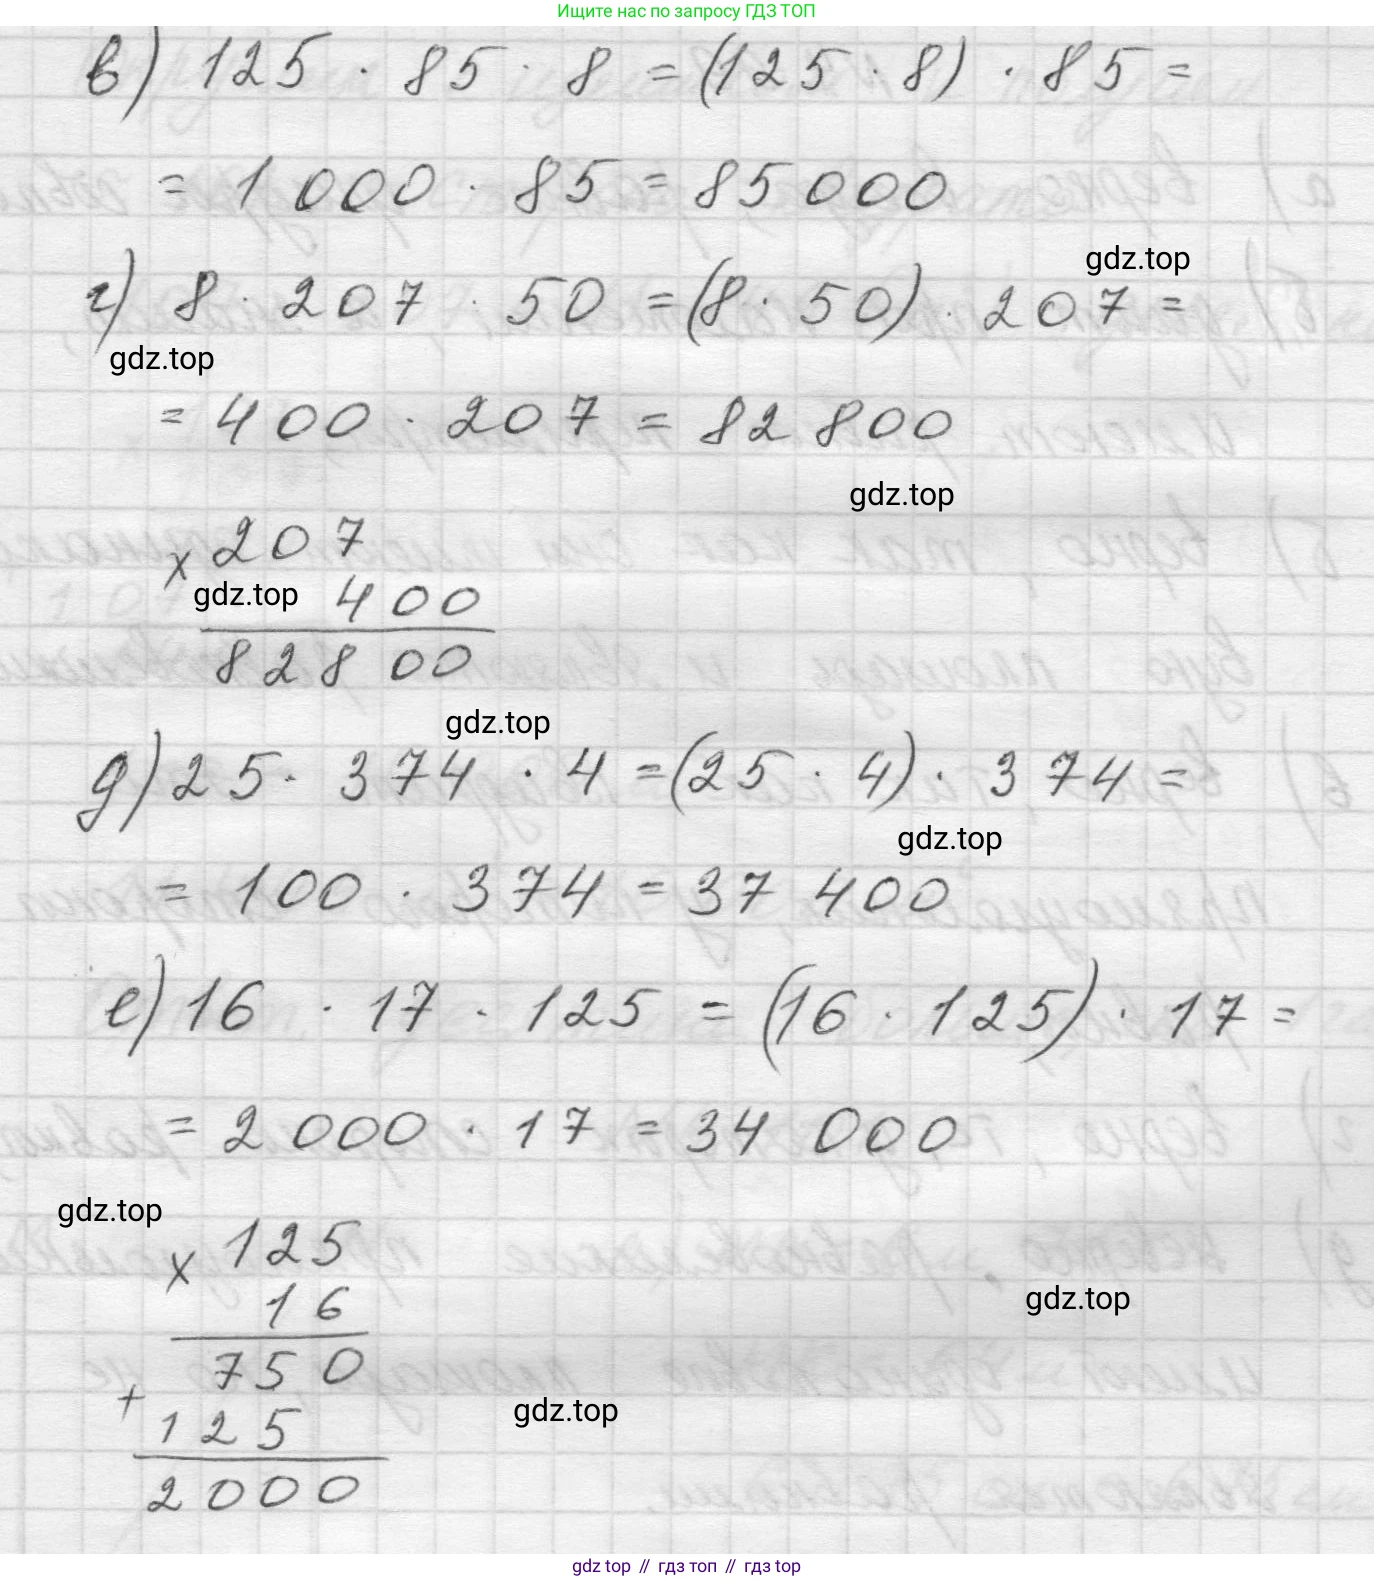 Ищите нас по запросу ГДЗ ТОП
в) 125 · 85 · 8 = (125 · 8) · 85 =
= 1000 · 85 = 85000
gdz.top
г) 8 · 207 · 50 = (8 · 50) · 207 =
gdz.top
= 400 · 207 = 82 800
gdz.top
× 207
gdz.top 400
82 800
gdz.top
д) 25 · 374 · 4 = (25 · 4) · 374 =
gdz.top
= 100 · 374 = 37 400
е) 16 · 17 · 125 = (16 · 125) · 17 =
= 2 000 · 17 = 34 000
gdz.top
× 125
16
gdz.top
750
+ 125
gdz.top
2000
gdz top // гдз топ // гдз top